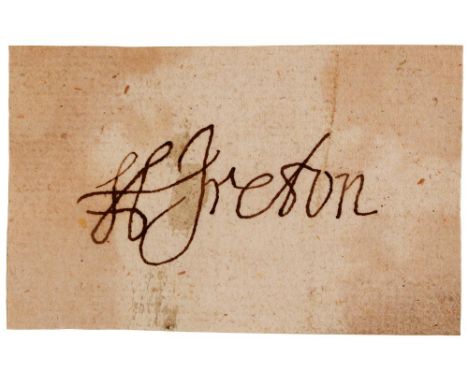 H Ireton